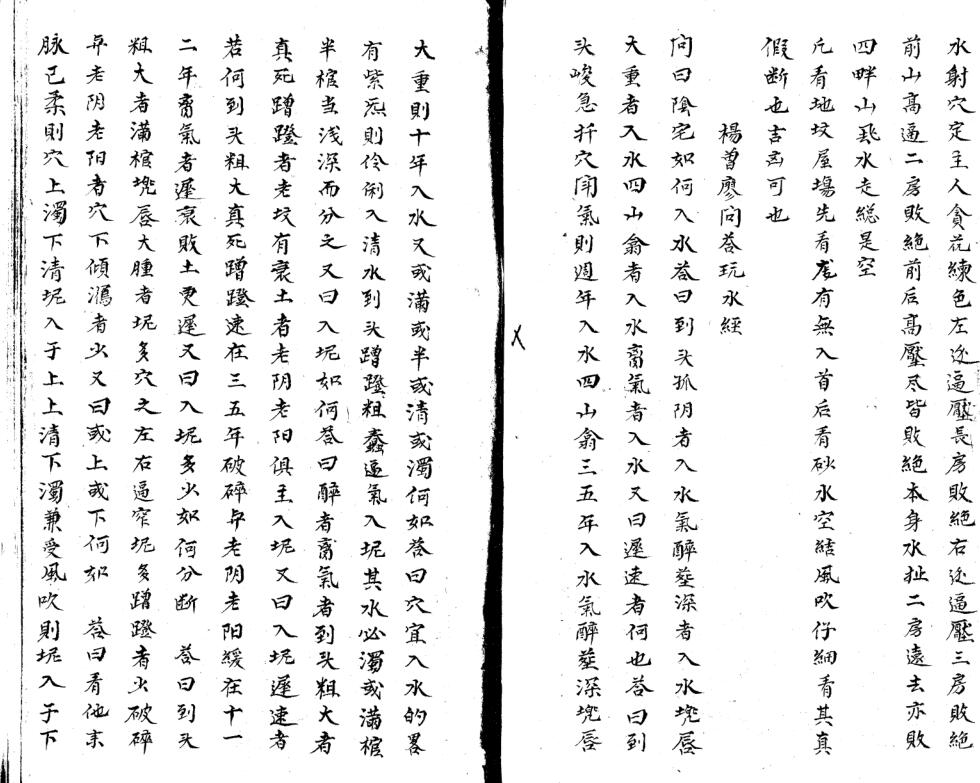 水射穴定主人貪花練色左边逼壓長房敗絕右边逼壓三房敗絕
前山高逼二房敗絕前后高壓尽皆敗絕本身水扯二房遠去亦敗
四畔山飛水走総是空
凢看地坟屋塲先看龙有無入首后看砂水空結風吹仔細看其真
假断也吉凶可也
楊曾廖问荅玩水經
问曰陰宅如何入水荅曰到头孤阴者入水氣醉塟深者入水堍唇
大重者入水四山翕者入水脔氣者入水又曰遲速者何也荅曰到
头峻急扦穴闭氣則週年入水四山翕三五年入水氣醉塟深堍唇
大重則十年入水又或滿或半或清或濁何如荅曰穴宜入水的畧
有紫炁則伶俐入清水到头蹭蹬粗蠢逼氣入坭其水必濁或滿棺
半棺当浅深而分之又曰入坭如何荅曰醉者脔氣者到头粗大者
真死蹭蹬者老坟有衰土者老阴老阳俱主入坭又曰入坭遲速者
若何到头粗大真死蹭蹬速在三五年破碎与老阴老阳緩在十一
二年脔氣者遲衰敗土更遲又曰入坭多少如何分断 荅曰到头
粗大者滿棺堍唇大腫者坭多穴之左右逼窄坭多蹭蹬者少破碎
与老阴老阳者穴下傾瀉者少又曰或上或下何如 荅曰看他来
脉已柔則穴上濁下清坭入于上上清下濁兼受風吹則坭入于下